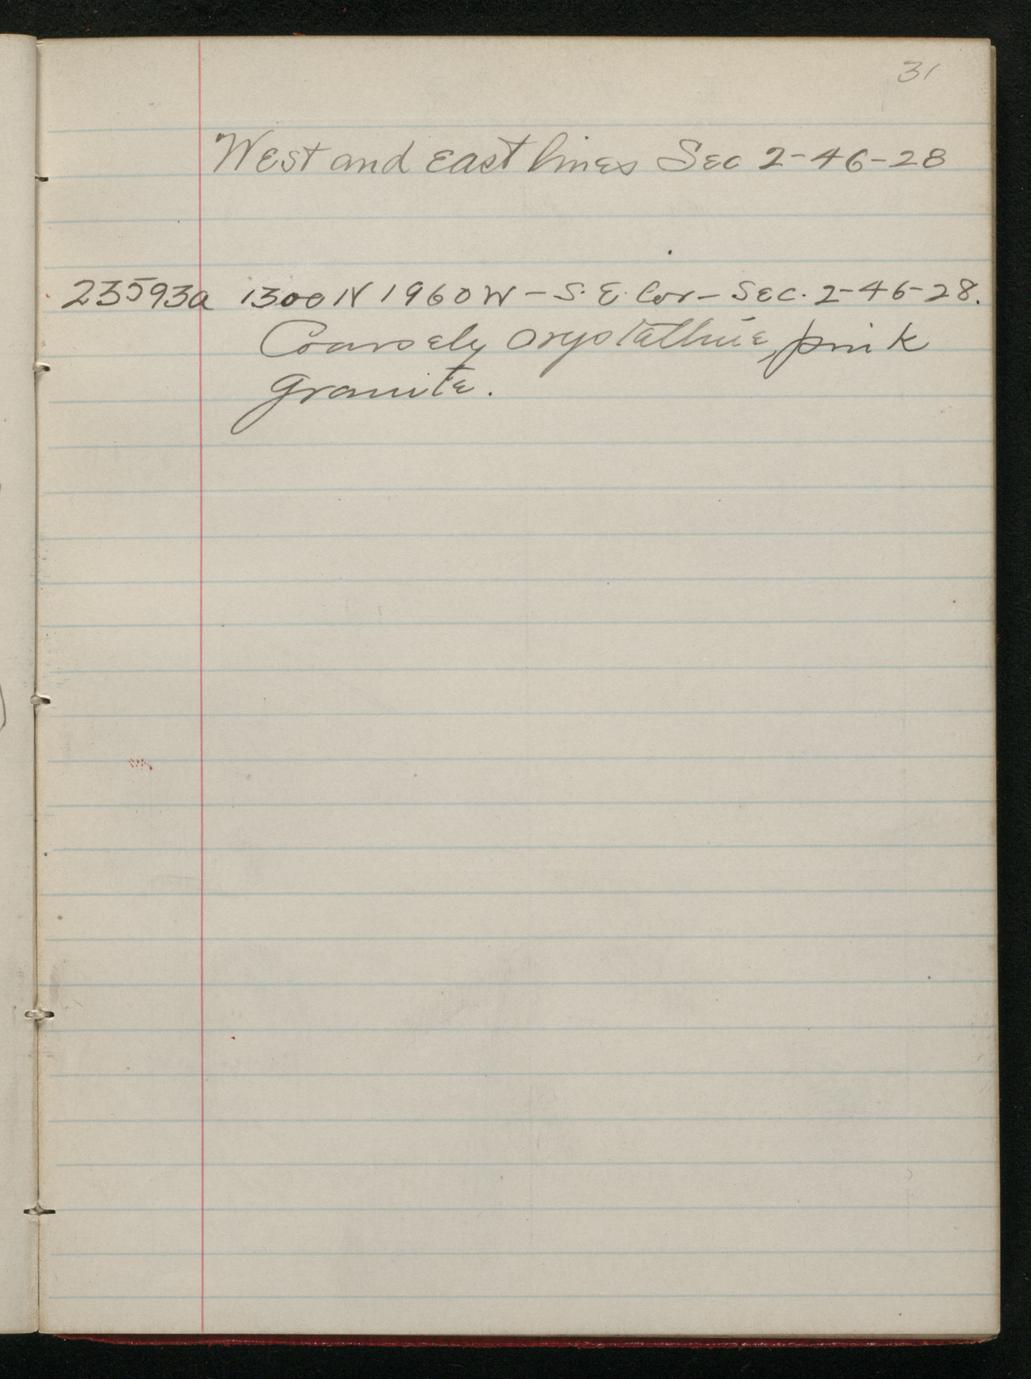 31
West and east lines Sec 2-46-28
23593a 1300 N 1960 W - S. E. Cor - Sec. 2-46-28.
Coarsely crystalline, pink
granite.